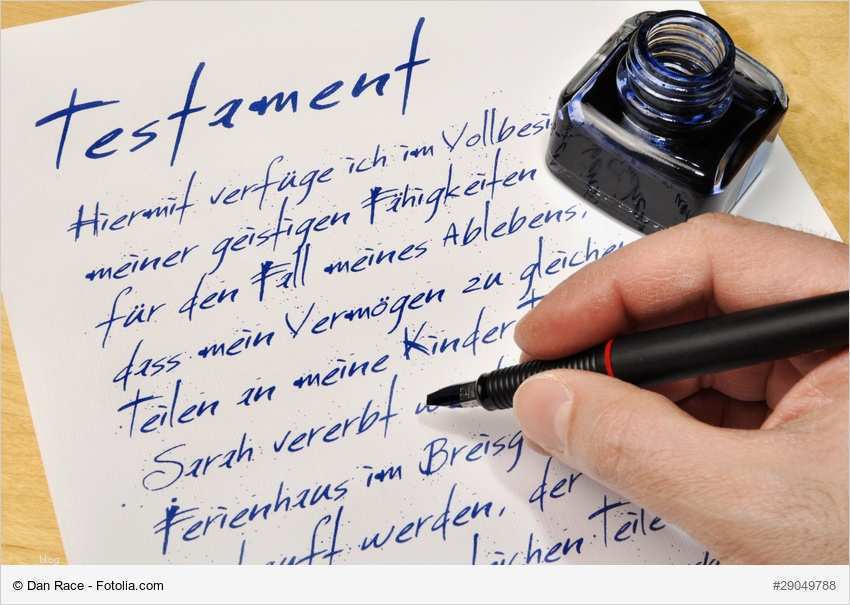 Testament
Hiermit verfüge ich im Vollbesi
meiner geistigen Fähigkeiten
für den Fall meines Ablebens,
dass mein Vermögen zu gleichen
Teilen an meine Kinder T
Sarah vererbt w
Ferienhaus im Breisg
auft werden, der
leichen Teile
blog
© Dan Race - Fotolia.com
#29049788